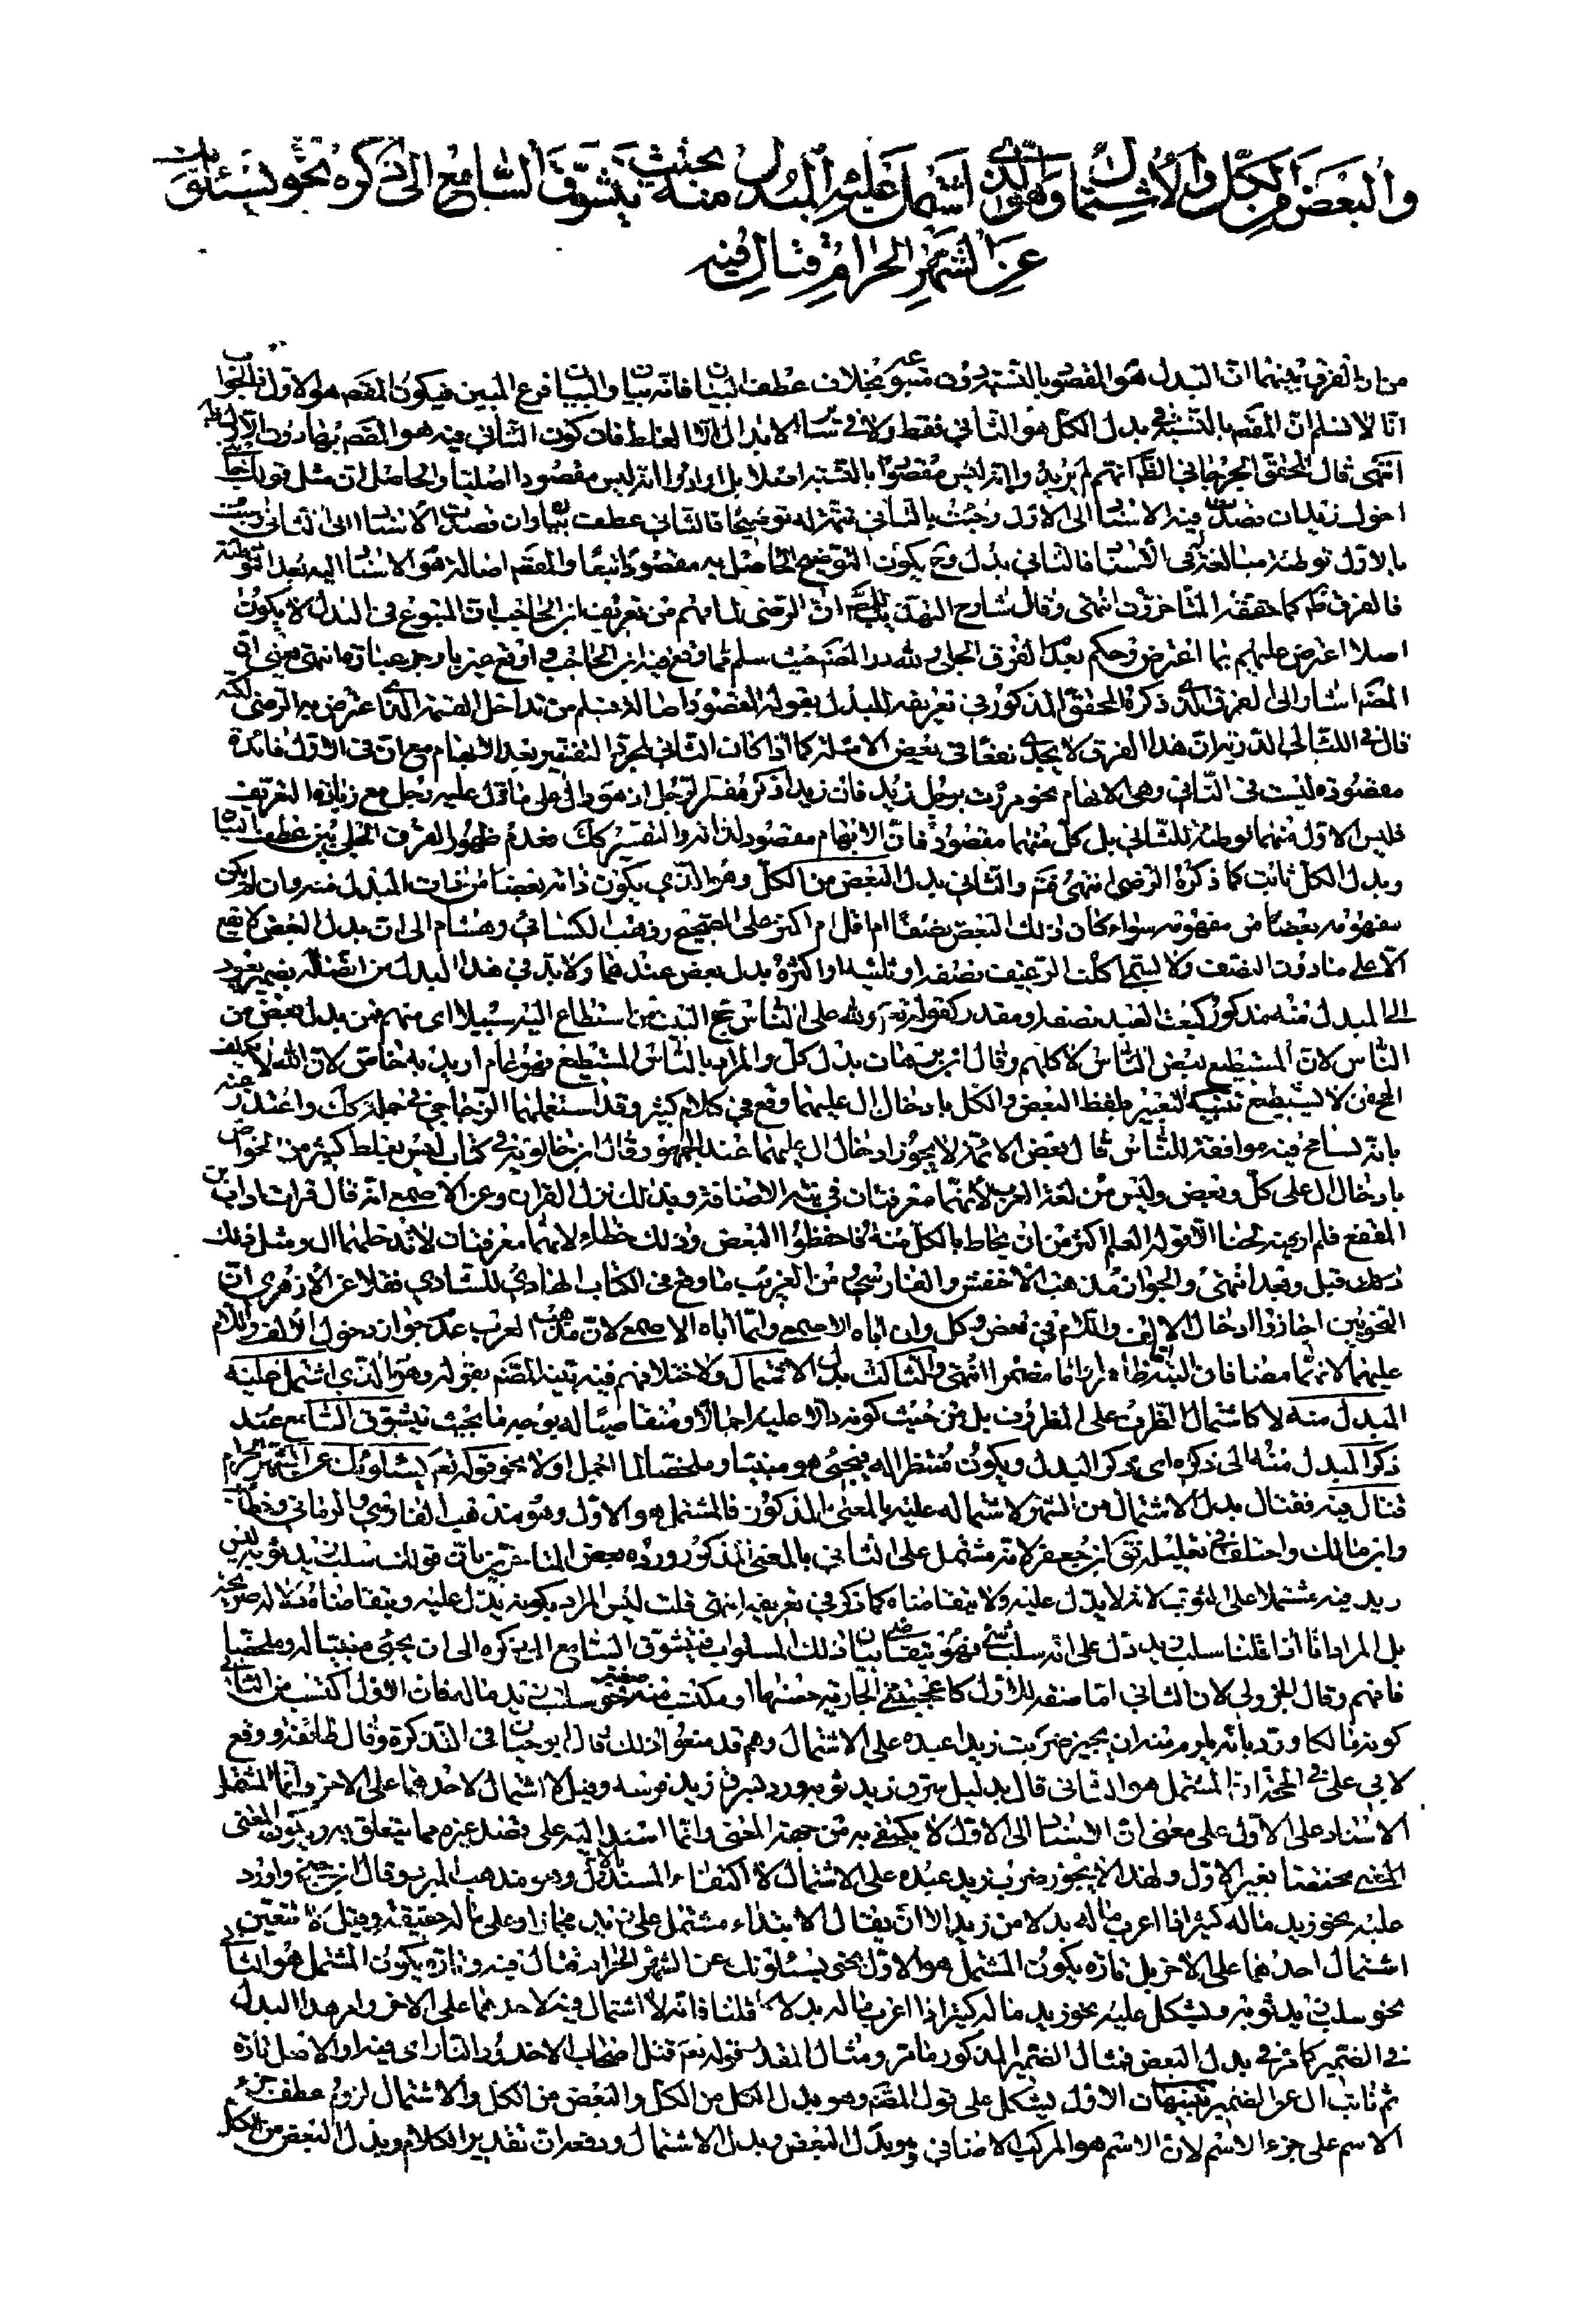 والبعض من الكل والاشتمال وهو الذي اشتمل عليه المبدل منه بحيث يتشوق السامع الى ذكره نحو يسئلونك
عن الشهر الحرام قتال فيه
من ان الفرق بينهما ان البدل هو المقصود بالنسبة دون متبوعه بخلاف عطف البيان فانه بيان والبيان فرع المبين فيكون المقصم هو الاول فالجواب
انا لا نسلم ان المقصم بالنسبة في بدل الكل هو الثاني فقط ولا في سائر الابدال الا الغلط فان كون الثاني فيه هو المقصم بها دون الاول ظم
انتهى قال المحقق الجرجاني الظم انهم لم يريدوا انه ليس مقصودا بالنسبة اصلا بل ارادوا انه ليس مقصودا اصليا والحاصل ان مثل قولك جائني
اخوك زيد ان قصدت فيه الاسناد الى الاول وجئت بالثاني تتمة له توضيحا فالثاني عطف بيان وان قصدت الاسناد الى الثاني وجئت
بالاول توطئة مبالغة في الاسناد فالثاني بدل وح يكون التوضيح الحاصل به مقصودا تبعا والمقصم اصالة هو الاسناد اليه بعد التوطئة
فالفرق ظم كما حققه المتأخرون انتهى وقال شارح التهذيب ان الرضي لما فهم من تعريف ابن الحاجب ان المتبوع في البدل لا يكون
اصلا اعترض عليهم بما اعترض وحكم بعدم الفرق الجلي ولله در المصنم حيث سلم مما وقع فيه ابن الحاجب واوقع غيره باوجز عبارة انتهى يعني ان
المصم اشار الى الفرق الذي ذكره المحقق المذكور في تعريفه للبدل بقوله المقصود اصالة فسلم من تداخل القسمة الذي اعترض به الرضي لكنه
قال في اللئالي الدرية ان هذا الفرق لا يجدي نفعا في بعض الامثلة كما اذا كان الثاني لمجرد التفسير بعد الابهام مع ان في الاول فائدة
مقصودة ليست في الثاني وهي الابهام نحو مررت برجل زيد فان زيدا ذكر مفسرا لرجل اذ هو دال على ما دل عليه رجل مع زيادة التعريف
فليس الاول منهما توطئة للثاني بل كل منهما مقصود فان الابهام مقصود لذاته والتفسير كك فعدم ظهور الفرق الجلي بين عطف البيان
وبدل الكل ثابت كما ذكره الرضي انتهى فتم والثاني بدل البعض من الكل وهو الذي يكون ذاته بعضا من ذات المبدل منه وان لم يكن
مفهومه بعضا من مفهومه سواء كان ذلك البعض نصفا ام اقل ام اكثر على الصحيح وذهب الكسائي وهشام الى ان بدل البعض لا يقع
الا على ما دون النصف ولا يسمى اكلت الرغيف نصفه او ثلثيه او اكثره بدل بعض عندهما ولا بد في هذا البدل من اتصاله بضمير يعود
الى المبدل منه مذكور كبعت العبد نصفه او مقدر كقوله تعم ولله على الناس حج البيت من استطاع اليه سبيلا اي منهم فمن بدل بعض من
الناس لان المستطيع بعض الناس لا كلهم وقال ابن برهان بدل كل والمراد بالناس المستطيع فهو عام اريد به خاص لان الله لا يكلف
الحج من لا يستطيع تنبيه التعبير بلفظ البعض والكل بادخال ال عليهما وقع في كلام كثير وقد استعملهما الزجاجي في جمله كك واعتذر عنه
بانه تسامح فيه موافقة للناس قال بعض الائمة لا يجوز ادخال ال عليهما عند الجمهور وقال ابن خالويه في كتاب ليس يغلط كثير من الخواص
بادخال ال على كل وبعض وليس من لغة العرب لانهما معرفتان في نية الاضافة وبذلك نزل القران وعن الاصمعي انه قال قرأت اداب ابن
المقفع فلم ار فيه لحنا الا قوله العلم اكثر من ان يحاط بالكل منه فاحفظوا البعض وذلك خطاء لانهما معرفتان لا تدخلهما ال ومثل ذلك
ذلك قبل وبعد انتهى والجواز مذهب الاخفش والفارسي ومن الغريب ما وقع في الكتاب الهادي للشادي نقلا عن الازهري ان
النحويين اجازوا ادخال الالف واللام في بعض وكل وان اباه الاصمعي وانما اباه الاصمعي لان مذهب العرب عدم جواز دخول الالف واللام
عليهما لانهما مضافان البتة ظاهرا واما مضمرا انتهى والثالث بدل الاشتمال ولاختلافهم فيه بينه المصنم بقوله وهو الذي اشتمل عليه
المبدل منه لا كاشتمال الظرف على المظروف بل من حيث كونه دالا عليه اجمالا ومتقاضيا له بوجه ما بحيث يتشوق السامع عند
ذكر المبدل منه الى ذكره اي ذكر البدل ويكون منتظرا له فيجئ هو مبينا وملخصا لما اجمل اولا نحو قوله تعم يسئلونك عن الشهر الحرام
قتال فيه فقتال بدل الاشتمال من الشهر لاشتماله عليه بالمعنى المذكور فالمشتمل هو الاول وهو مذهب الفارسي والرماني وخطاب
وابن مالك واختلف في تعليله ورده بعض المتاخرين بان قولك سلب زيد ثوبه ليس
زيد فيه مشتملا على الثوب لانه لا يدل عليه ولا يتقاضاه كما ذكر في تعريفه انتهى قلت ليس المراد بكونه يدل عليه ويتقاضاه دلالة صريحة
بل المراد انا اذا قلنا سلب زيد دل على انه سلب شئ فهو يتقاضى بيان ذلك المسلوب فيتشوق السامع الى ذكره الى ان يجئ مبينا له وملخصا
فافهم وقال الجزولي لان الثاني اما صفة للاول كاعجبتني الجارية حسنها او مكتسب منه صفة نحو سلب زيد ماله فان الاول اكتسب من الثاني
كونه مالكا ورد بانه يلزم منه ان يجيز ضربت زيدا عبده على الاشتمال وهم قد منعوا ذلك قال ابو حيان في التذكرة وقال طائفة ووقع
لابي علي في الحجة ان المشتمل هو الثاني قال بدليل سرق زيد ثوبه ورد بسرق زيد فرسه وقيل لا اشتمال لاحدهما على الاخر وانما المشتمل
الاسناد على الاول على معنى ان الاسناد الى الاول لا يكتفى به من جهة المعنى وانما اسند اليه على قصد غيره مما يتعلق به ويكون المعنى
مختصا بغير الاول ولهذا لا يجوز ضرب زيد عبده على الاشتمال لاكتفاء المسند بالاول وهو مذهب المبرد وقال ابن جني واورد
عليه نحو زيد ماله كثير اذا اعرب ماله بدلا من زيد الا ان يقال الابتداء مشتمل على زيد مجازا وعلى ماله حقيقة وقيل لا يتعين
اشتمال احدهما على الاخر بل تارة يكون المشتمل هو الاول نحو يسئلونك عن الشهر الحرام قتال فيه وتارة يكون المشتمل هو الثاني
نحو سلب زيد ثوبه ويشكل عليه نحو زيد ماله كثير اذا اعرب ماله بدلا كما قلنا فانه لا اشتمال فيه لاحدهما على الاخر وامر هذا البدل
في الضمير كما مر في بدل البعض فمثال الضمير المذكور ما مر ومثال المقدر قوله تعم قتل اصحاب الاخدود النار اي فيه او الاصل ناره
ثم نابت ال عن الضمير تنبيهات الاول يشكل على قول المصنم وهو بدل الكل من الكل والبعض من الكل والاشتمال لزوم عطف جزء
الاسم على جزء الاسم لان الاسم هو المركب الاضافي وهو بدل البعض وبدل الاشتمال ودفعه ان تقدير الكلام وبدل البعض من الكل